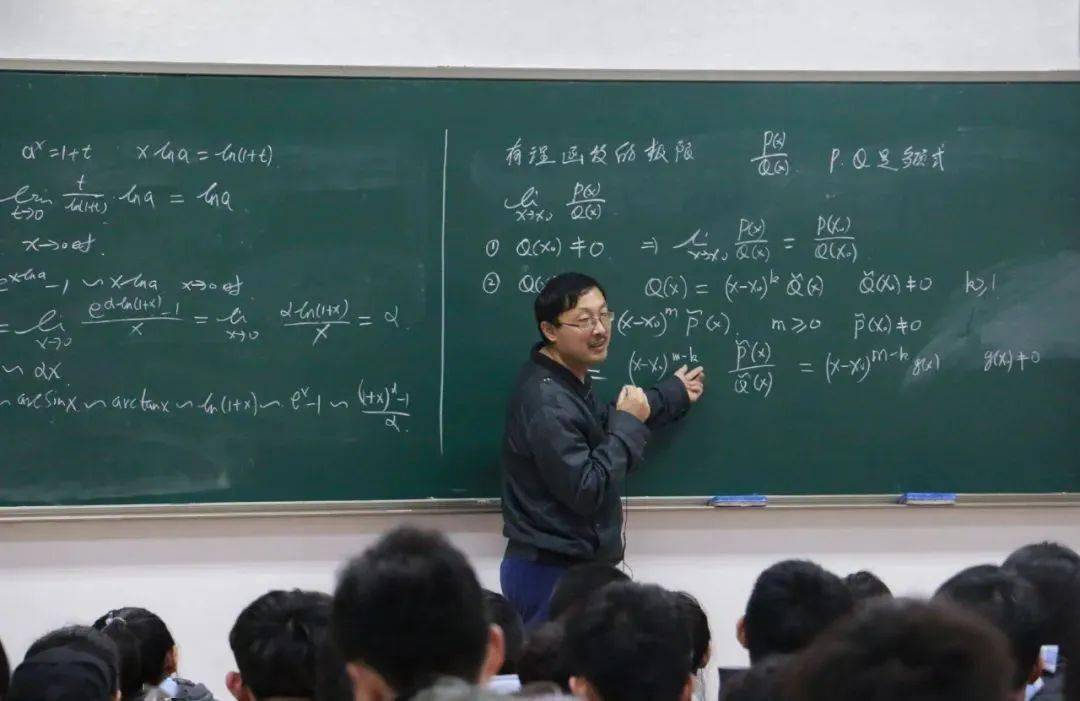 aˣ=1+t x ln a = ln(1+t).
lim t→0 t/ln(1+t) · ln a = ln a
x→0时
eˣˡⁿᵃ-1 ∽ x ln a x→0时
= lim x→0 (e^{α ln(1+x)}-1)/x = lim x→0 α ln(1+x)/x = α
∽ αx
∽ arcsin x ∽ arctan x ∽ ln(1+x) ∽ eˣ-1 ∽ ((1+x)^α-1)/α
有理函数的极限 P(x)/Q(x) P.Q是多项式
lim x→x₀ P(x)/Q(x)
① Q(x₀)≠0 ⇒ lim x→x₀ P(x)/Q(x) = P(x₀)/Q(x₀)
② Q(x) = (x-x₀)^k Q̃(x) Q̃(x₀)≠0 k≥1
(x-x₀)^m P̃(x). m≥0 P̃(x₀)≠0
= (x-x₀)^{m-k} P̃(x)/Q̃(x) = (x-x₀)^{m-k} g(x) g(x)≠0